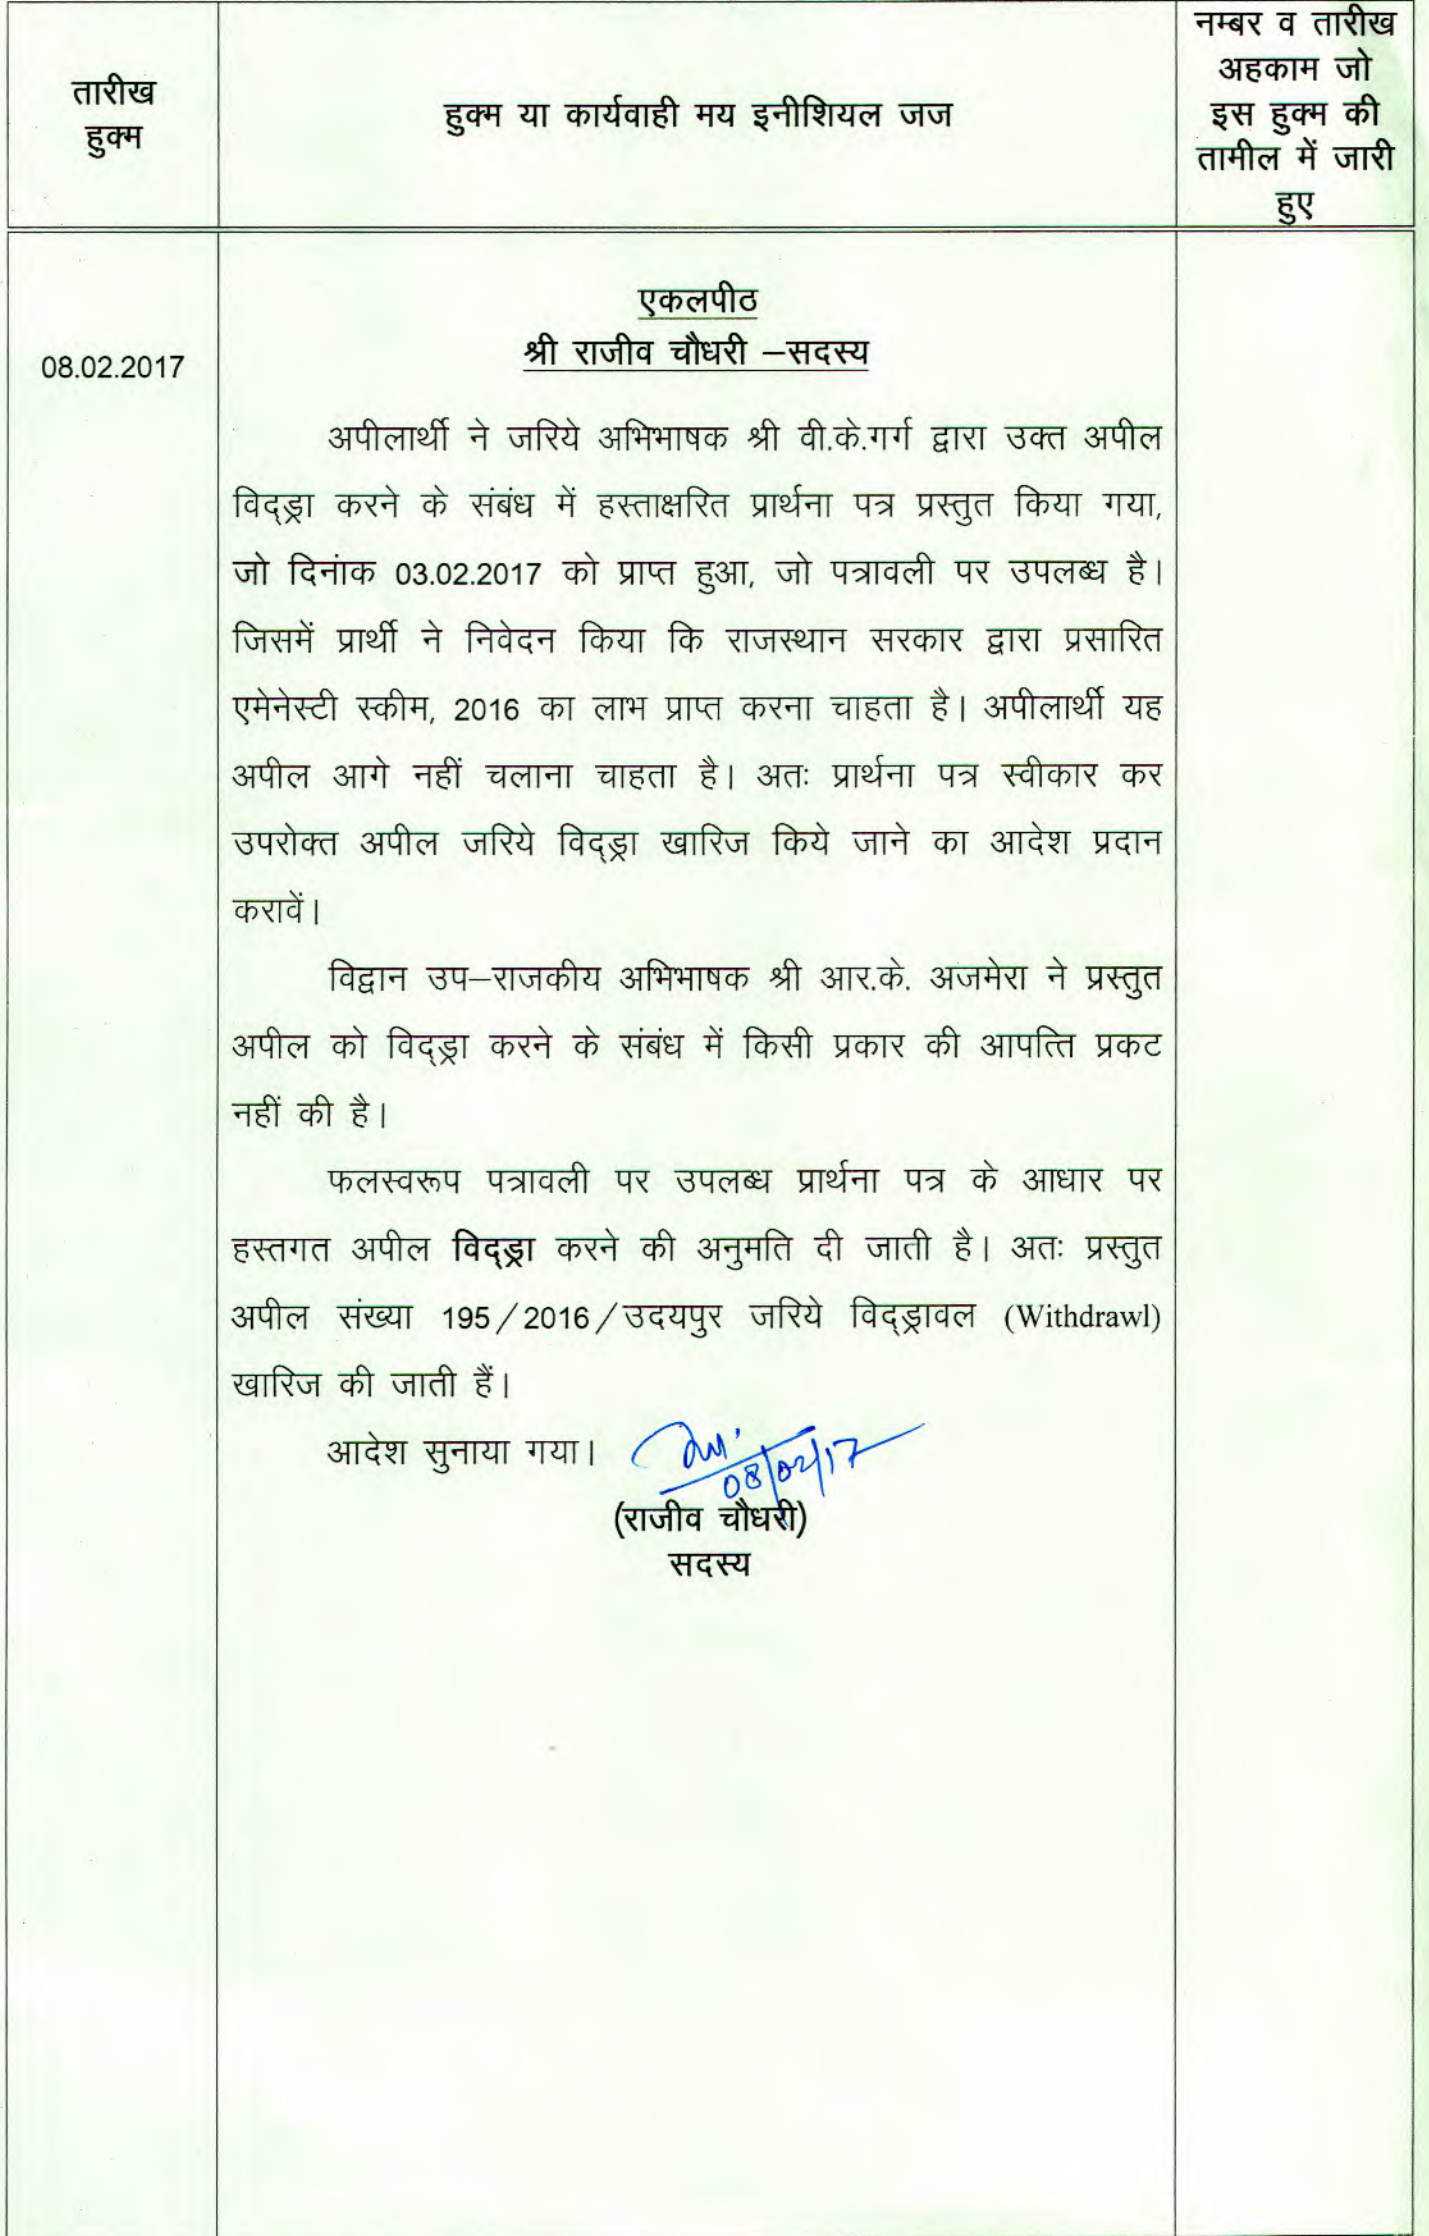 तारीख
हुक्म
हुक्म या कार्यवाही मय इनीशियल जज
नम्बर व तारीख
अहकाम जो
इस हुक्म की
तामील में जारी
हुए
08.02.2017
एकलपीठ
श्री राजीव चौधरी –सदस्य
अपीलार्थी ने जरिये अभिभाषक श्री वी.के.गर्ग द्वारा उक्त अपील
विद्ड्रा करने के संबंध में हस्ताक्षरित प्रार्थना पत्र प्रस्तुत किया गया,
जो दिनांक 03.02.2017 को प्राप्त हुआ, जो पत्रावली पर उपलब्ध है।
जिसमें प्रार्थी ने निवेदन किया कि राजस्थान सरकार द्वारा प्रसारित
एमेनेस्टी स्कीम, 2016 का लाभ प्राप्त करना चाहता है। अपीलार्थी यह
अपील आगे नहीं चलाना चाहता है। अतः प्रार्थना पत्र स्वीकार कर
उपरोक्त अपील जरिये विद्ड्रा खारिज किये जाने का आदेश प्रदान
करावें।
विद्वान उप–राजकीय अभिभाषक श्री आर.के. अजमेरा ने प्रस्तुत
अपील को विद्ड्रा करने के संबंध में किसी प्रकार की आपत्ति प्रकट
नहीं की है।
फलस्वरूप पत्रावली पर उपलब्ध प्रार्थना पत्र के आधार पर
हस्तगत अपील विद्ड्रा करने की अनुमति दी जाती है। अतः प्रस्तुत
अपील संख्या 195/2016/उदयपुर जरिये विद्ड्रावल (Withdrawl)
खारिज की जाती हैं।
आदेश सुनाया गया।
08/02/17
(राजीव चौधरी)
सदस्य